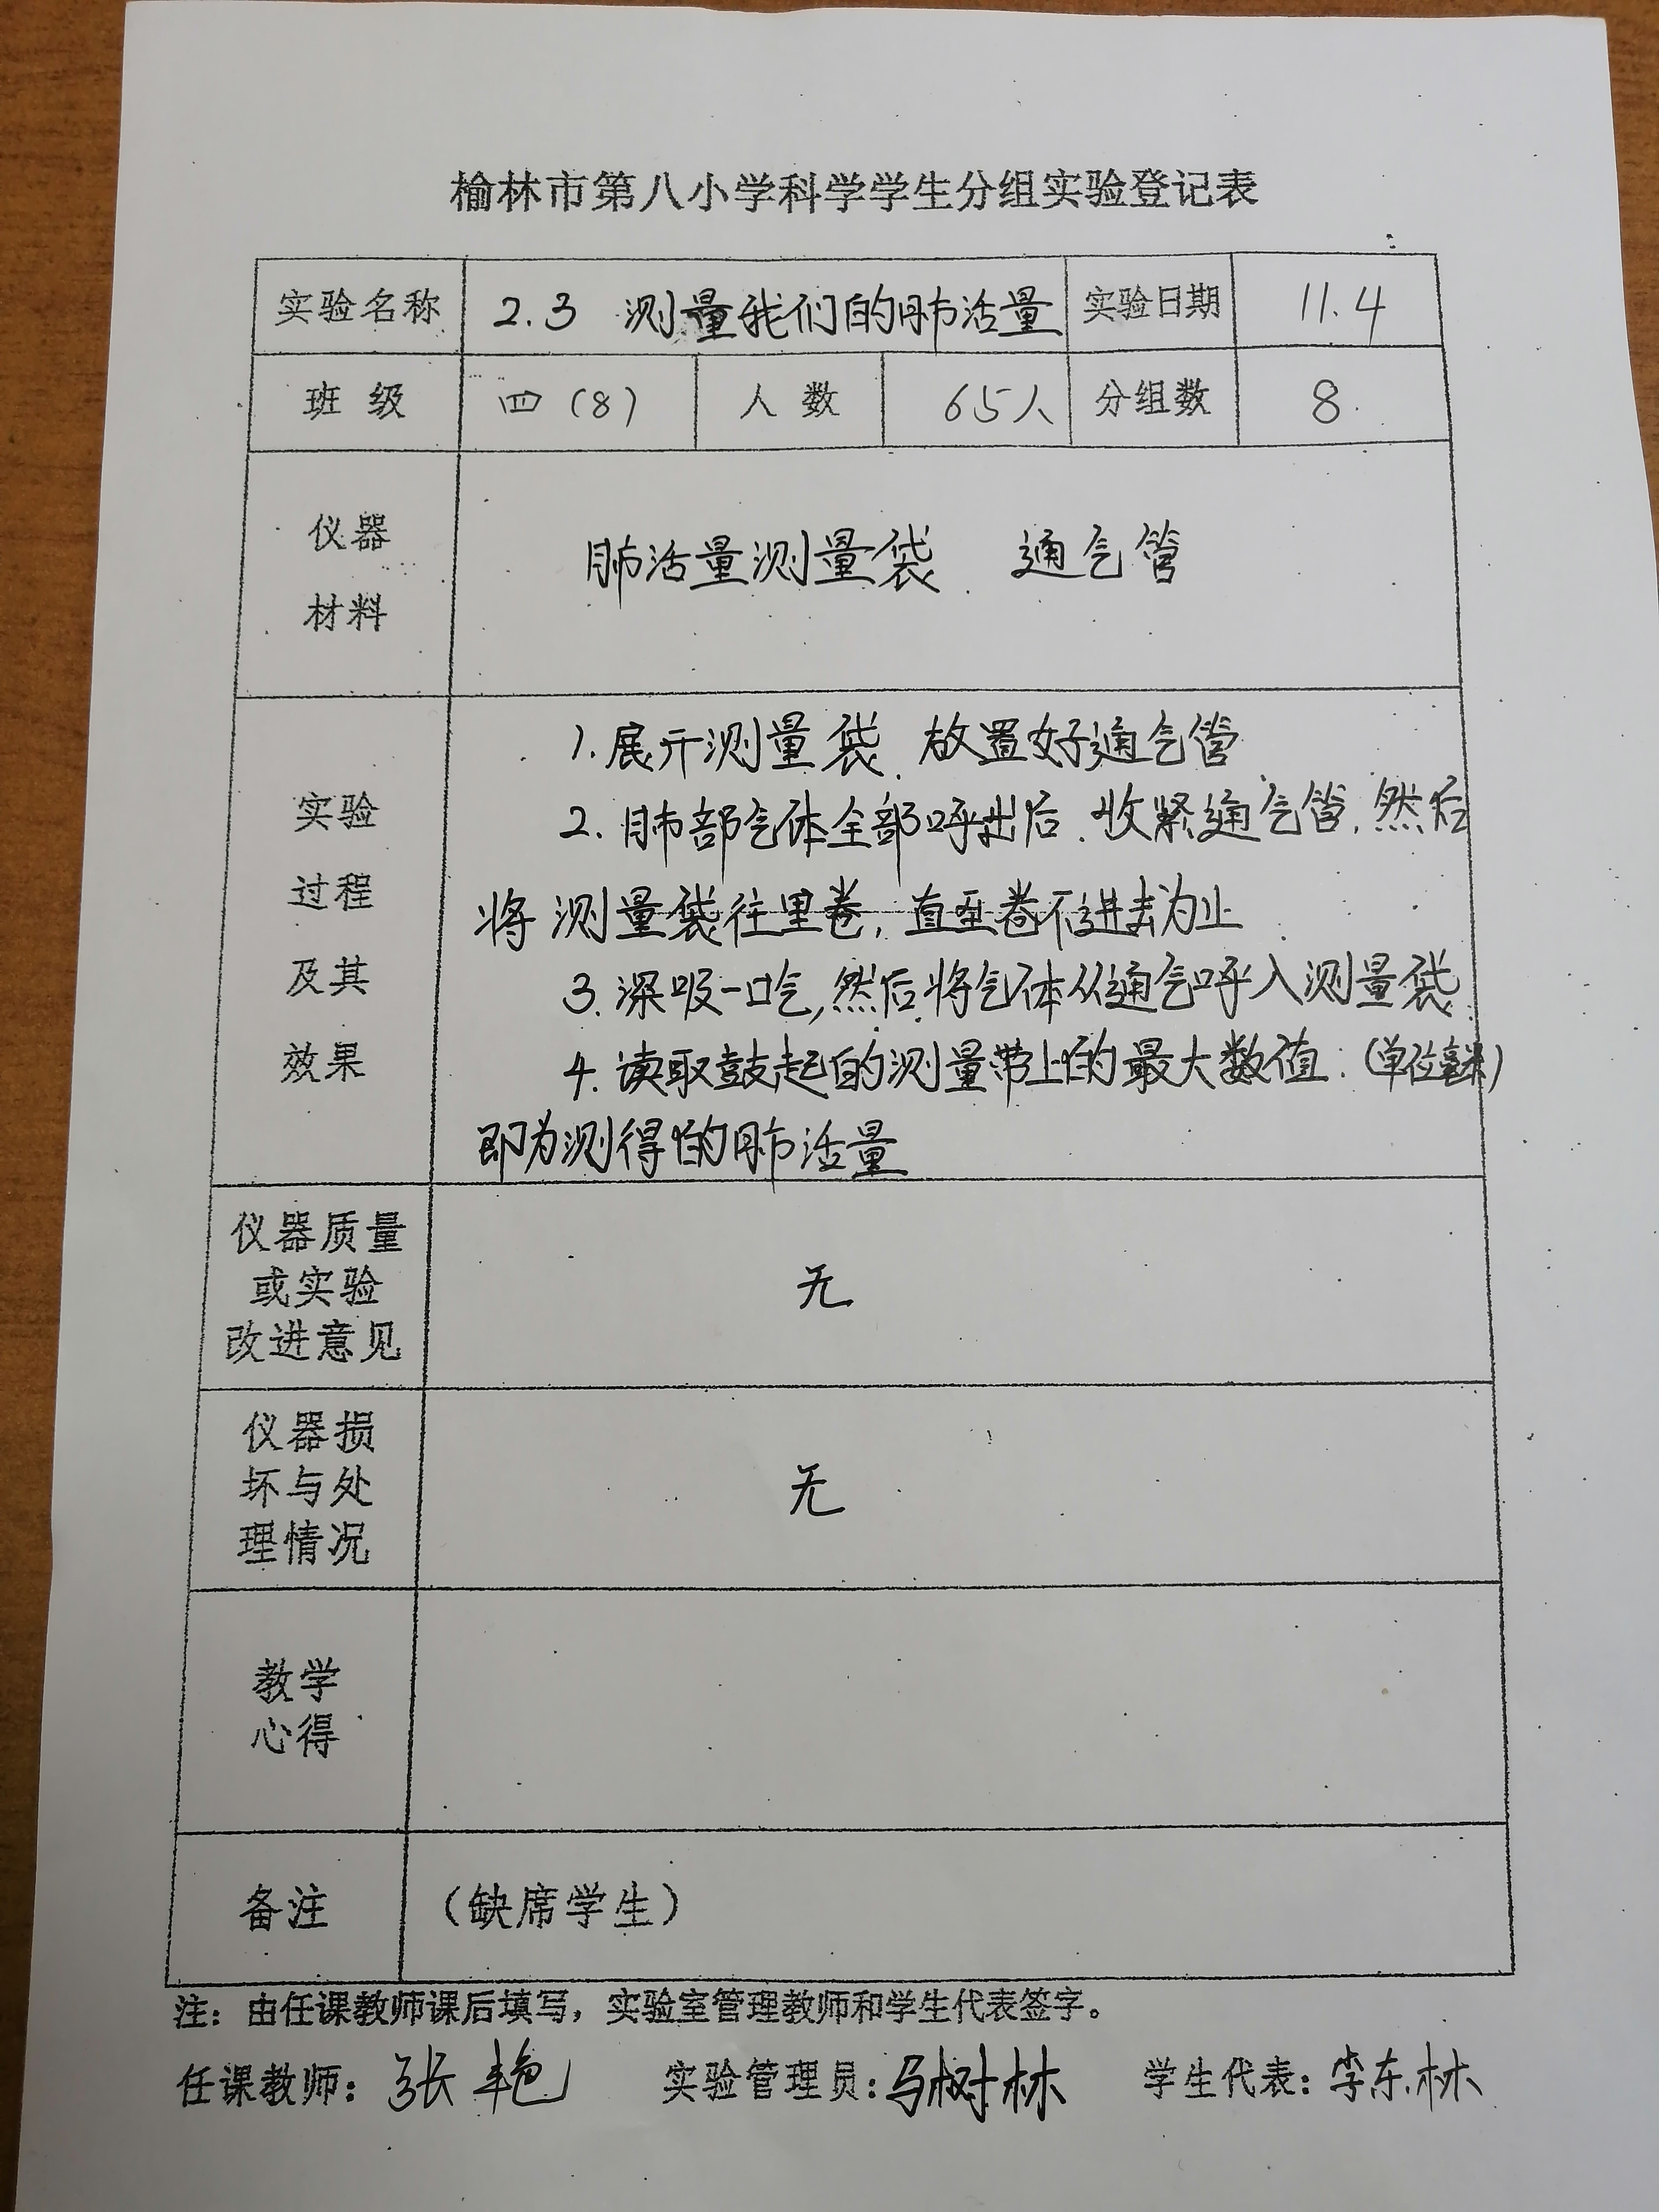 榆林市第八小学科学学生分组实验登记表
实验名称 2.3 测量我们的肺活量 实验日期 11.4
班级 四(8) 人数 65人 分组数 8
仪器
材料
肺活量测量袋 通气管
实验
过程
及其
效果
1.展开测量袋、放置好通气管
2.肺部气体全部呼出后.收紧通气管,然后
将测量袋往里卷,直至卷不进去为止
3.深吸一口气,然后将气体从通气呼入测量袋
4.读取鼓起的测量带上的最大数值:(单位毫升)
即为测得的肺活量
仪器质量
或实验
改进意见
无
仪器损
坏与处
理情况
无
教学
心得
备注 (缺席学生)
注:由任课教师课后填写,实验室管理教师和学生代表签字。
任课教师:张艳 实验管理员:马树林 学生代表:李东林